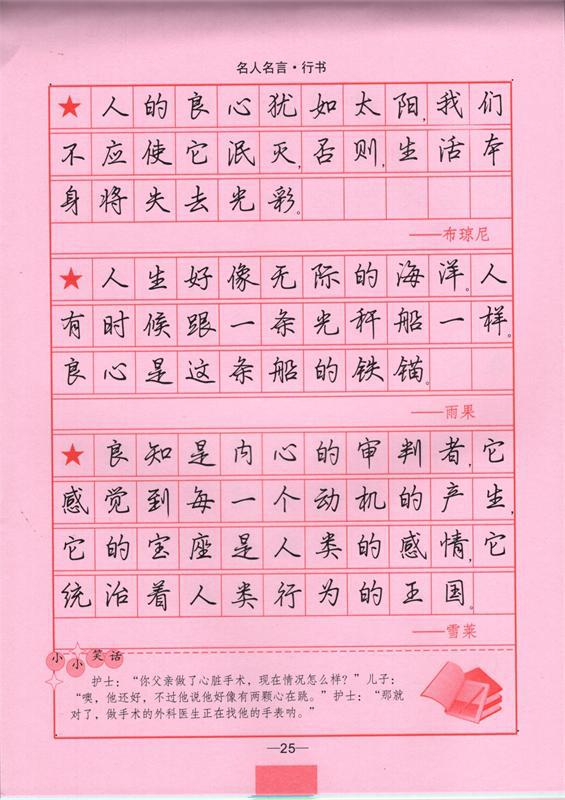 名人名言·行书
★人的良心犹如太阳,我们
不应使它泯灭,否则,生活本
身将失去光彩。
——布琼尼
★人生好像无际的海洋。人
有时候跟一条光秆船一样。
良心是这条船的铁锚。
——雨果
★良知是内心的审判者,它
感觉到每一个动机的产生,
它的宝座是人类的感情,它
统治着人类行为的王国。
——雪莱
小小笑话
护士:“你父亲做了心脏手术,现在情况怎么样?”儿子:
“噢,他还好,不过他说他好像有两颗心在跳。”护士:“那就
对了,做手术的外科医生正在找他的手表呐。”
—25—